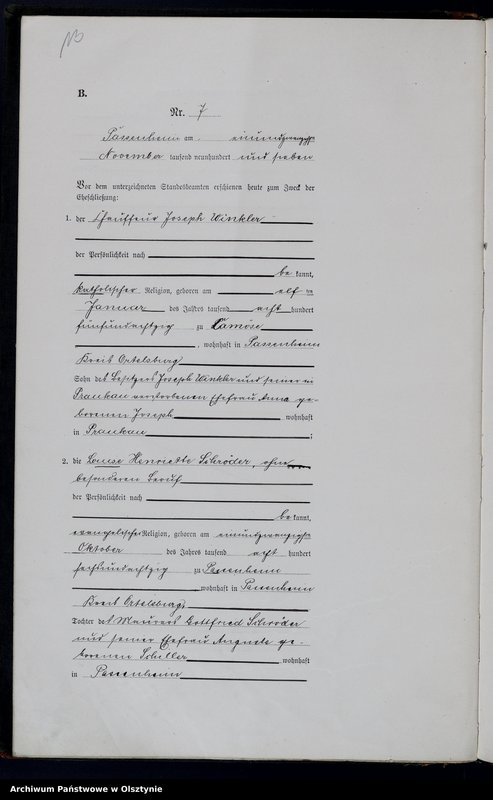 B.
Nr. 7
Passenheim am einundzwanzigsten
November tausend neunhundert und sieben
Vor dem unterzeichneten Standesbeamten erschienen heute zum Zweck der
Eheschließung:
1. der Chauffeur Joseph Winkler
der Persönlichkeit nach
be kannt,
katholischer Religion, geboren am elf ten
Januar des Jahres tausend acht hundert
fünfundachtzig zu
, wohnhaft in Passenheim
Kreis Ortelsburg
Sohn des Besitzers Joseph Winkler und seiner in
Praukau verstorbenen Ehefrau Anna ge-
borenen Joseph wohnhaft
in Praukau ;
2. die Louise Henriette Schröder, ohne
besonderen Beruf
der Persönlichkeit nach
be kannt,
evangelischer Religion, geboren am einundzwanzigsten
Oktober des Jahres tausend acht hundert
sechsundachtzig zu Passenheim
, wohnhaft in Passenheim
Kreis Ortelsburg,
Tochter des Maurers Gottfried Schröder
und seiner Ehefrau Auguste ge-
borenen Schiller wohnhaft
in Passenheim
Archiwum Państwowe w Olsztynie